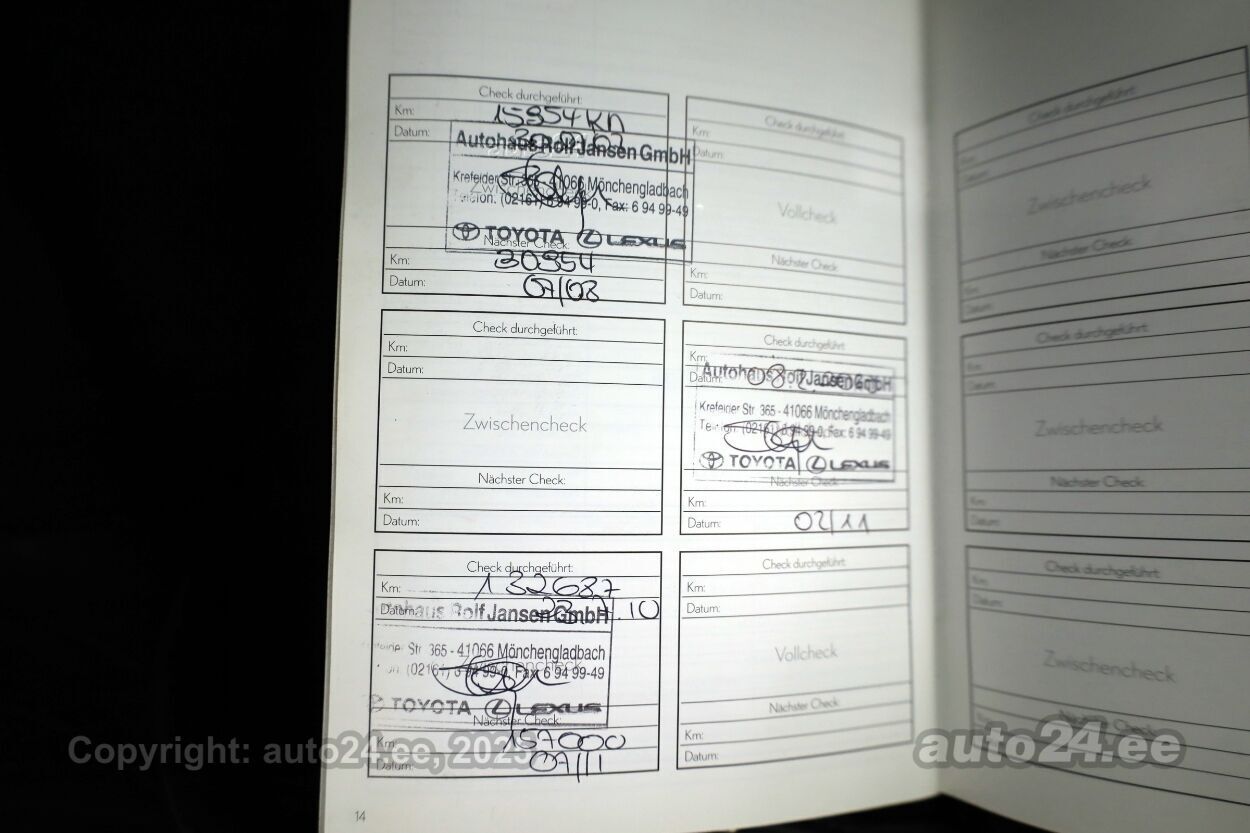 Check durchgeführt:
Km: 15954 KM
Datum:
Autohaus Rolf Jansen GmbH
Krefelder Str. 365 - 41066 Mönchengladbach
Telefon: (02161) 6 94 99-0, Fax: 6 94 99-49
TOYOTA LEXUS
Nächster Check:
Km: 30954
Datum: 07/08
Check durchgeführt:
Km:
Datum:
Zwischencheck
Nächster Check:
Km:
Datum:
Check durchgeführt:
Km: 132637
Datum: .10
Rolf Jansen GmbH
Str 365 - 41066 Mönchengladbach
(02161) 6 94 99-0, Fax 6 94 99-49
Zwischencheck
TOYOTA LEXUS
Nächster Check:
Km: 157000
Datum: 07/11
14
Check durchgeführt:
Km:
Datum:
Vollcheck
Nächster Check:
Km:
Datum:
Check durchgeführt:
Km:
Datum:
Autohaus Rolf Jansen GmbH
Krefelder Str 365 - 41066 Mönchengladbach
(02161) 6 94 99-0, Fax: 6 94 99-49
TOYOTA LEXUS
Nächster Check:
Km:
Datum: 02/11
Check durchgeführt:
Km:
Datum:
Vollcheck
Nächster Check:
Km:
Datum:
Check durchgeführt:
Km:
Datum:
Zwischencheck
Nächster Check:
Km:
Datum:
Check durchgeführt:
Km:
Datum:
Zwischencheck
Nächster Check:
Km:
Datum:
Check durchgeführt:
Km:
Datum:
Zwischencheck
Copyright: auto24.ee, 2025
auto24.ee